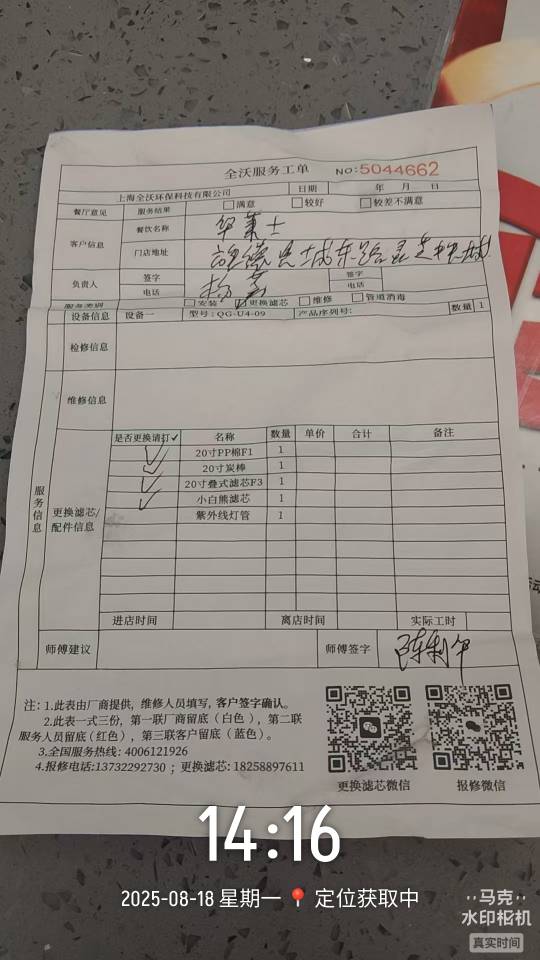 全沃服务工单 NO:5044662
上海全沃环保科技有限公司 日期 年 月 日
餐厅意见 服务结果 满意 较好 较差不满意
客户信息 餐饮名称 华莱士
门店地址
负责人 签字 签字
电话 电话
服务类别 安装 更换滤芯 维修 管道消毒
设备信息 设备一 型号:QG-U4-09 产品序列号: 数量 1
检修信息
维修信息
服务信息
更换滤芯/配件信息
是否更换请打✓ 名称 数量 单价 合计 备注
✓ 20寸PP棉F1 1
✓ 20寸炭棒 1
✓ 20寸叠式滤芯F3 1
✓ 小白熊滤芯 1
紫外线灯管 1
进店时间 离店时间 实际工时
师傅建议 师傅签字
注:1.此表由厂商提供,维修人员填写,客户签字确认。
2.此表一式三份,第一联厂商留底(白色),第二联
服务人员留底(红色),第三联客户留底(蓝色)。
3.全国服务热线:4006121926
4.报修电话:13732292730;更换滤芯:18258897611
更换滤芯微信 报修微信
14:16
2025-08-18 星期一 定位获取中
马克
水印相机
真实时间